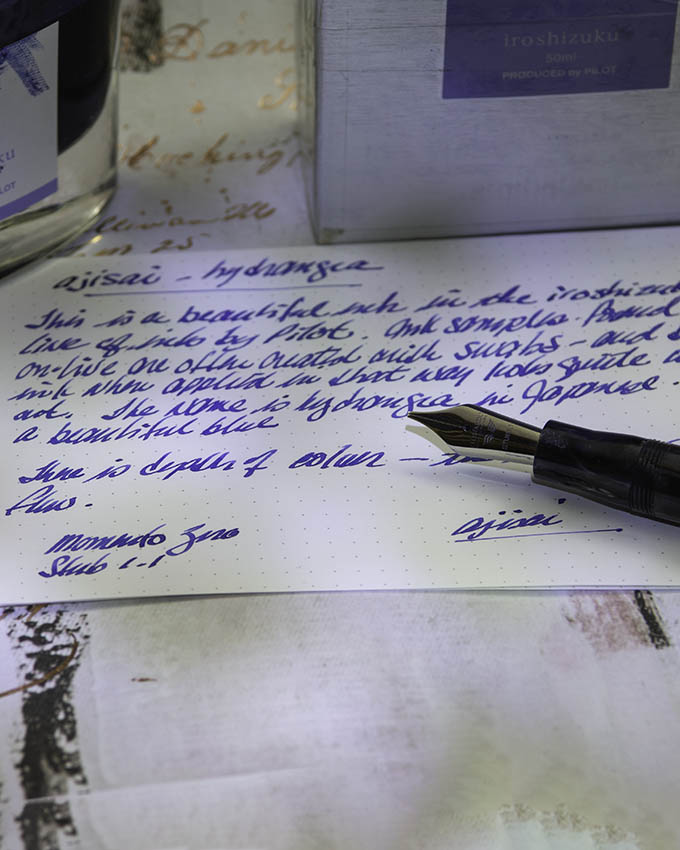 Dani
iroshizuku
50ml
PRODUCED by PILOT
ku
LOT
ajisai - hydrangea
This is a beautiful ink in the iroshizuku
line of inks by Pilot. Ink samples found
on-line are often created with swabs - and
ink when applied in that way looks quite
The name is hydrangea in Japanese.
a beautiful blue
There is depth of colour -
flow.
Momento Zero
Stub 1.1
ajisai